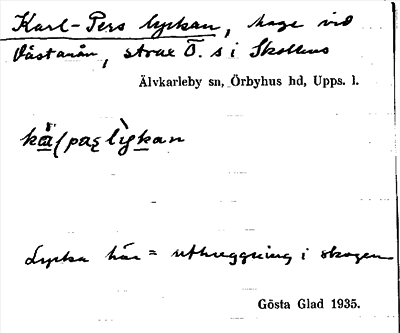 Karl-Pers lyckan, hage vid
Västanån, strax Ö. s i Skutskär
Älvkarleby sn, Örbyhus hd, Upps. l.
Lycka här = uthuggning i skogen
Gösta Glad 1935.